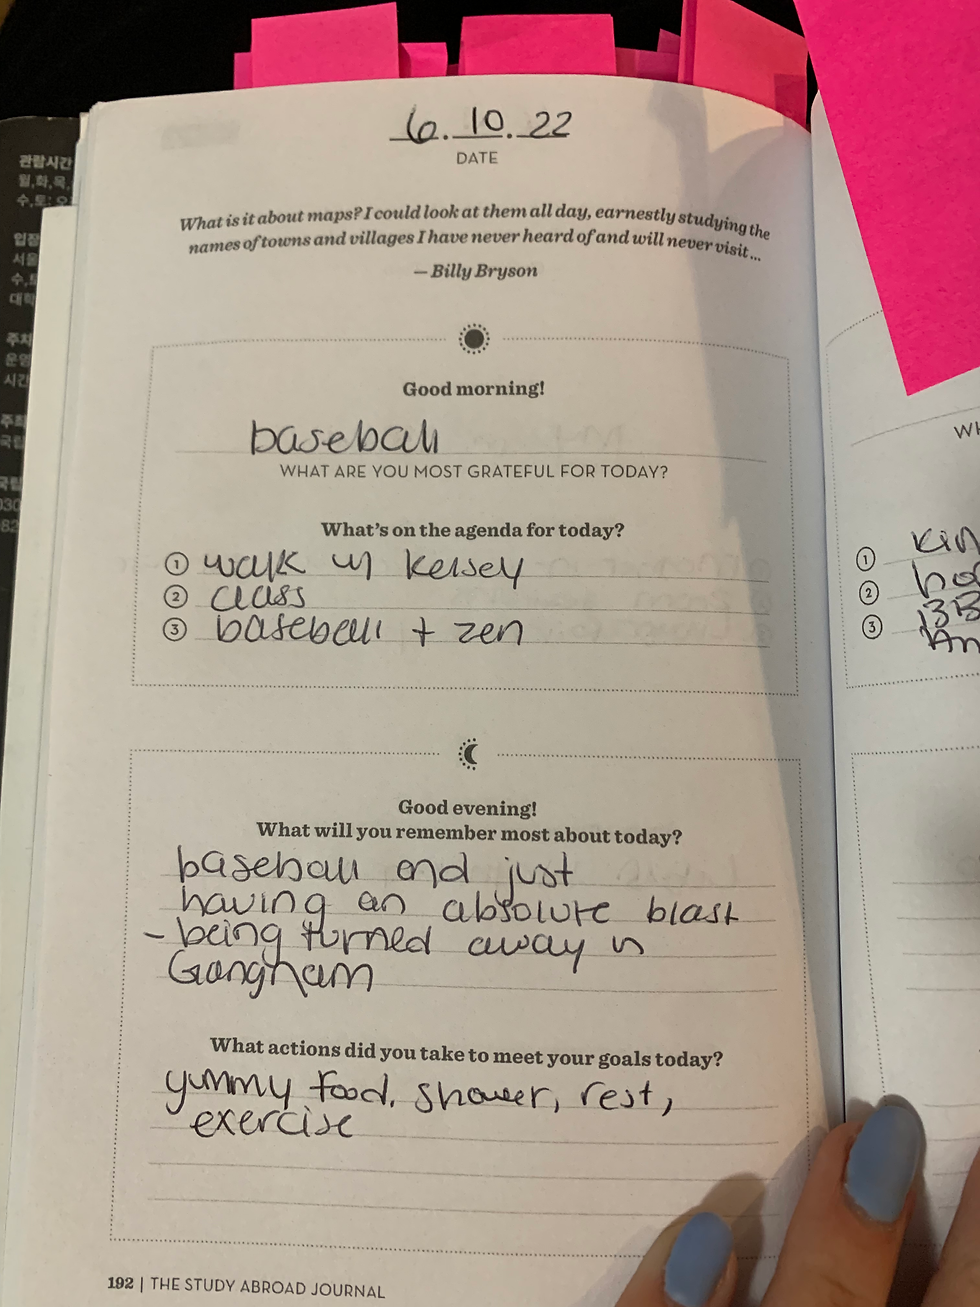 관람시간
월,화,목,
수,토:
입장
서울
수,토
대학
주차
운영
시간
주최
국립
국립
030
82
6.10.22
DATE
What is it about maps? I could look at them all day, earnestly studying the
names of towns and villages I have never heard of and will never visit...
— Billy Bryson
Good morning!
baseball
WHAT ARE YOU MOST GRATEFUL FOR TODAY?
What's on the agenda for today?
1 walk w Kelsey
2 class
3 baseball + zen
Good evening!
What will you remember most about today?
baseball and just
having an absolute blast
- being turned away in
Gangnam
What actions did you take to meet your goals today?
yummy food, shower, rest,
exercise
192 | THE STUDY ABROAD JOURNAL
WH
1 kin
2 ho
3